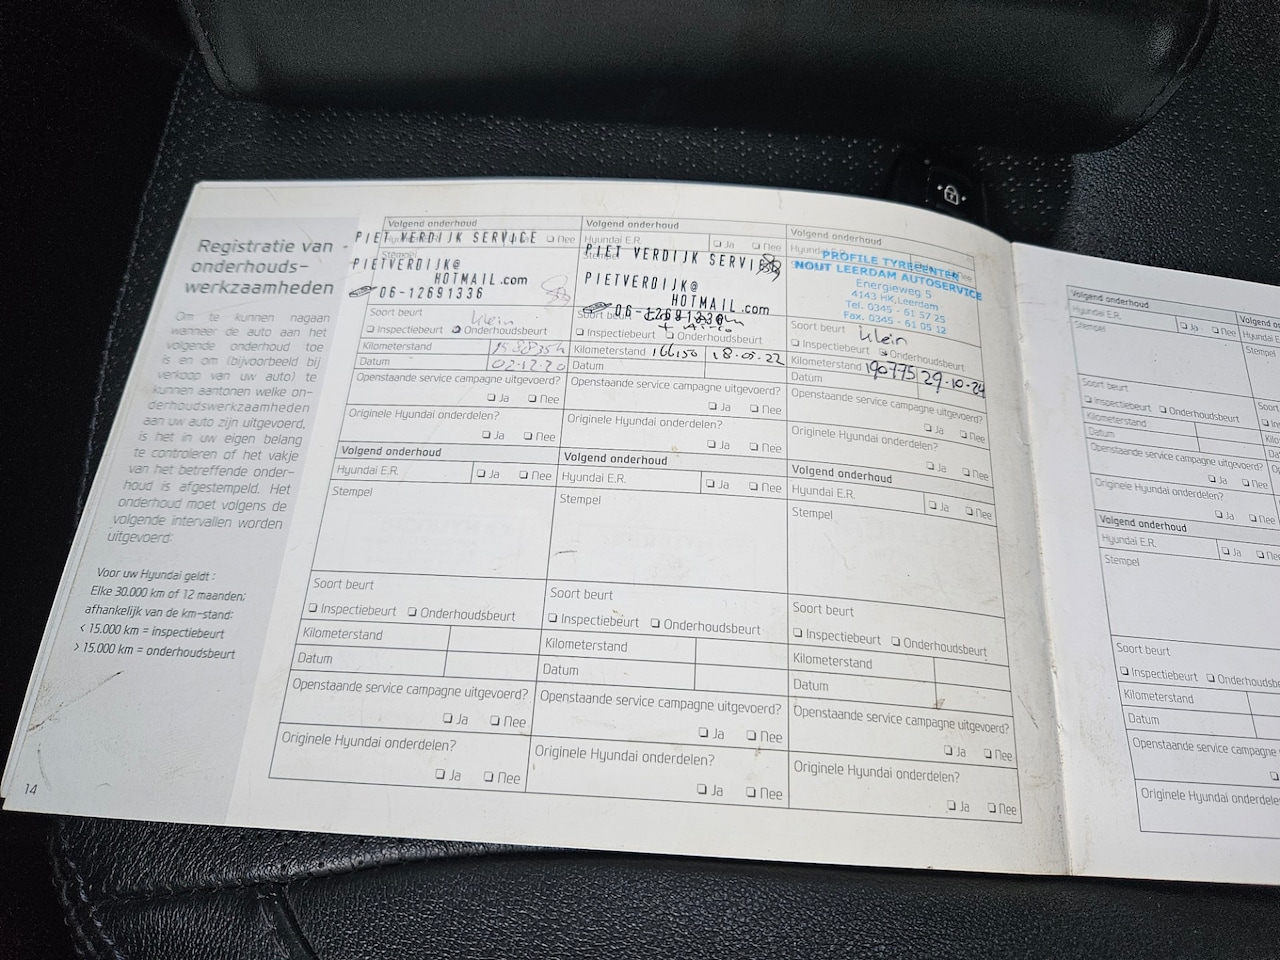 Registratie van
onderhouds-
werkzaamheden
Om te kunnen nagaan
wanneer de auto aan het
volgende onderhoud toe
is en om (bijvoorbeeld bij
verkoop van uw auto) te
kunnen aantonen welke on-
derhoudswerkzaamheden
aan uw auto zijn uitgevoerd,
is het in uw eigen belang
te controleren of het vakje
van het betreffende onder-
houd is afgestempeld. Het
onderhoud moet volgens de
volgende intervallen worden
uitgevoerd:
Voor uw Hyundai geldt :
Elke 30.000 km of 12 maanden;
afhankelijk van de km-stand:
< 15.000 km = inspectiebeurt
> 15.000 km = onderhoudsbeurt
14
Volgend onderhoud
PIET VERDIJK SERVICE
Nee
PIETVERDIJK@
HOTMAIL.com
06-12691336
Soort beurt
klein
Inspectiebeurt Onderhoudsbeurt
Kilometerstand
Datum 02.12.20
Openstaande service campagne uitgevoerd?
Ja Nee
Originele Hyundai onderdelen?
Ja Nee
Volgend onderhoud
Hyundai E.R. Ja Nee
PIET VERDIJK
PIETVERDIJK@
HOTMAIL.com
Soort beurt
+ Airco
Inspectiebeurt Onderhoudsbeurt
Kilometerstand 166150 18-05-22
Datum
Openstaande service campagne uitgevoerd?
Ja Nee
Originele Hyundai onderdelen?
Ja Nee
Volgend onderhoud
PROFILE TYRECENTER
NOUT LEERDAM AUTOSERVICE
Energieweg 5
4143 HK Leerdam
Tel. 0345 - 61 57 25
Fax. 0345 - 61 05 12
Soort beurt klein
Inspectiebeurt Onderhoudsbeurt
Kilometerstand 190775 29-10-24
Datum
Openstaande service campagne uitgevoerd?
Ja Nee
Originele Hyundai onderdelen?
Ja Nee
Volgend onderhoud
Hyundai E.R. Ja Nee
Stempel
Soort beurt
Inspectiebeurt Onderhoudsbeurt
Kilometerstand
Datum
Openstaande service campagne uitgevoerd?
Ja Nee
Originele Hyundai onderdelen?
Ja Nee
Volgend onderhoud
Hyundai E.R. Ja Nee
Stempel
Soort beurt
Inspectiebeurt Onderhoudsbeurt
Kilometerstand
Datum
Openstaande service campagne uitgevoerd?
Ja Nee
Originele Hyundai onderdelen?
Ja Nee
Volgend onderhoud
Hyundai E.R. Ja Nee
Stempel
Soort beurt
Inspectiebeurt Onderhoudsbeurt
Kilometerstand
Datum
Openstaande service campagne uitgevoerd?
Ja Nee
Originele Hyundai onderdelen?
Ja Nee
Volgend onderhoud
Hyundai E.R. Ja Nee
Stempel
Soort beurt
Inspectiebeurt Onderhoudsbeurt
Kilometerstand
Datum
Openstaande service campagne uitgevoerd?
Ja Nee
Originele Hyundai onderdelen?
Ja Nee
Volgend onderhoud
Hyundai E.R. Ja Nee
Stempel
Soort beurt
Inspectiebeurt
Kilometerstand
Datum
Openstaande service campagne
Originele Hyundai